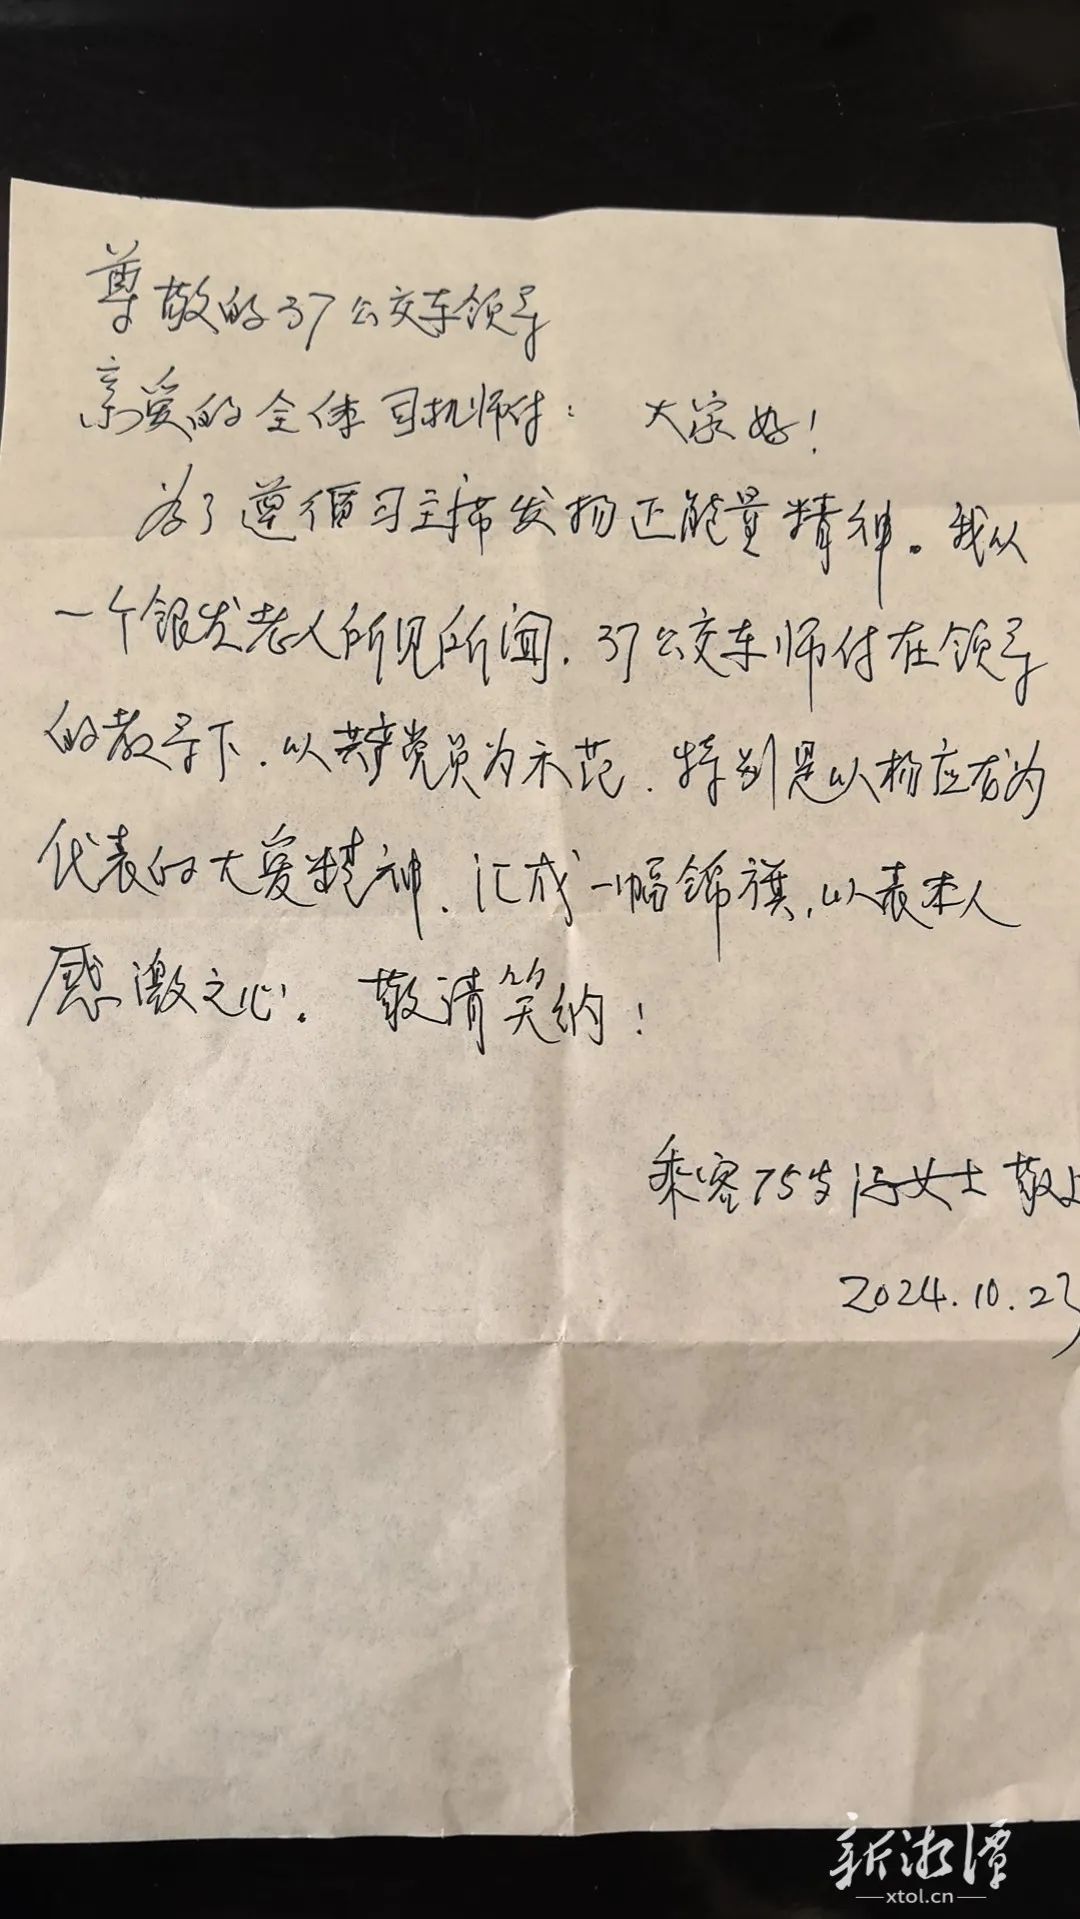 尊敬的37公交车领导
亲爱的全体司机师付：大家好！
为了遵循习主席发扬正能量精神。我从
一个银发老人所见所闻.37公交车师付在领导
的教导下.以共产党员为示范.特别是以杨应龙为
代表的大爱精神.汇成一幅锦旗,以表本人
感激之心!.敬请笑纳！
乘客75岁冯女士敬上
2024.10.23
新湘潭
xtol.cn